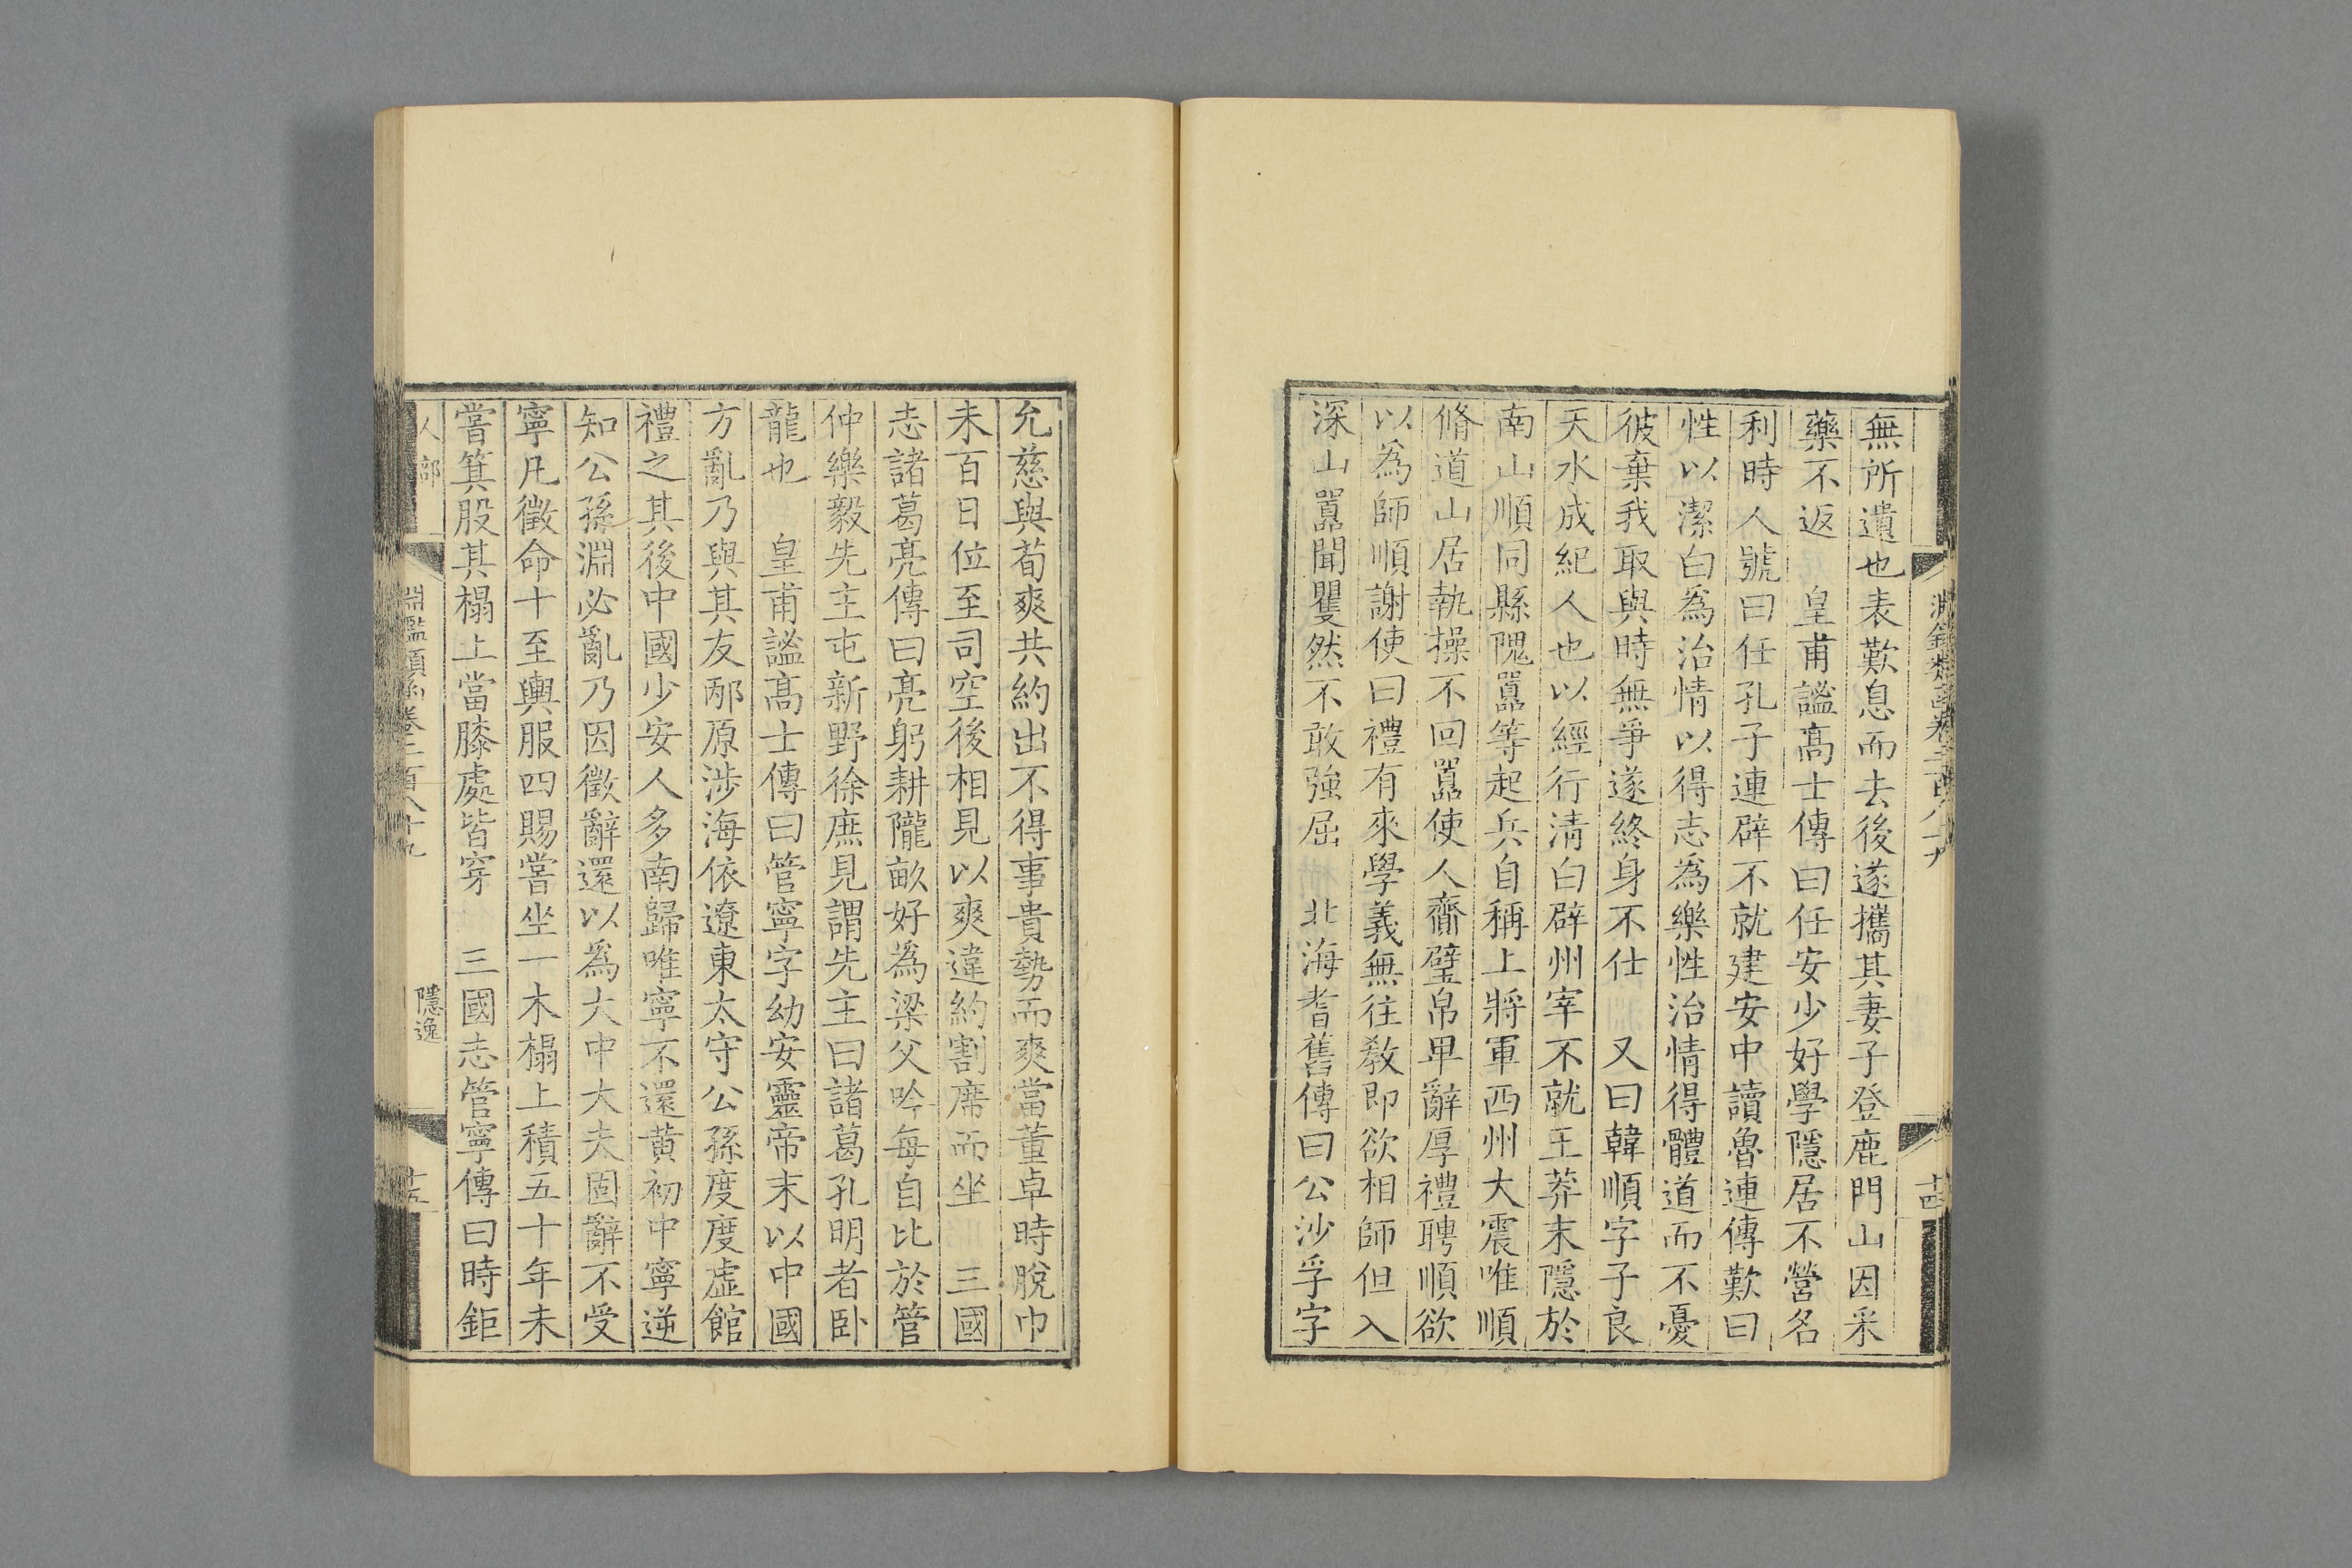 無所遺也表歎息而去後遂攜其妻子登鹿門山因采
藥不返　皇甫謐髙士傳曰任安少好學隱居不營名
利時人號曰任孔子連辟不就建安中讀魯連傳歎曰
性以潔白爲治情以得志爲樂性治情得體道而不憂
彼棄我取與時無爭遂終身不仕　又曰韓順字子良
天水成紀人也以經行清白辟州宰不就王莽末隱於
南山順同縣隗囂等起兵自稱上將軍西州大震唯順
脩道山居執操不回囂使人齎璧帛卑辭厚禮聘順欲
以爲師順謝使曰禮有來學義無往教即欲相師但入
深山囂聞矍然不敢強屈　北海耆舊傳曰公沙孚字
十四
允慈與荀爽共約出不得事貴勢而爽當董卓時脫巾
未百日位至司空後相見以爽違約割席而坐　三國
志諸葛亮傳曰亮躬耕隴畝好爲梁父吟每自比於管
仲樂毅先主屯新野徐庶見謂先主曰諸葛孔明者卧
龍也　皇甫謐髙士傳曰管寧字幼安靈帝末以中國
方亂乃與其友邴原渉海依遼東太守公孫度度虚館
禮之其後中國少安人多南歸唯寧不還黄初中寧逆
知公孫淵必亂乃因徵辭還以爲大中大夫固辭不受
寧凡徵命十至輿服四賜嘗坐一木榻上積五十年未
嘗箕股其榻上當膝處皆穿　三國志管寧傳曰時鉅
人部
淵鑑類函卷二百八十九
隱逸
十五